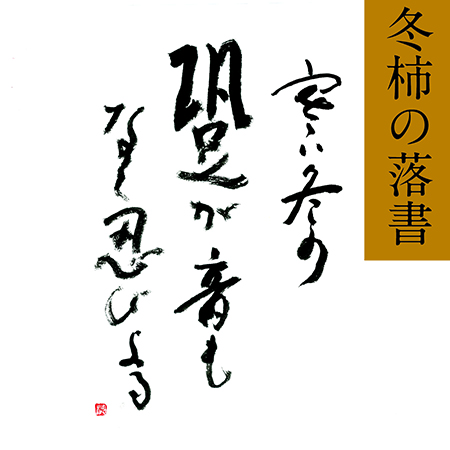 冬柿の落書
寒い冬の
跫が音も
なく忍びよる